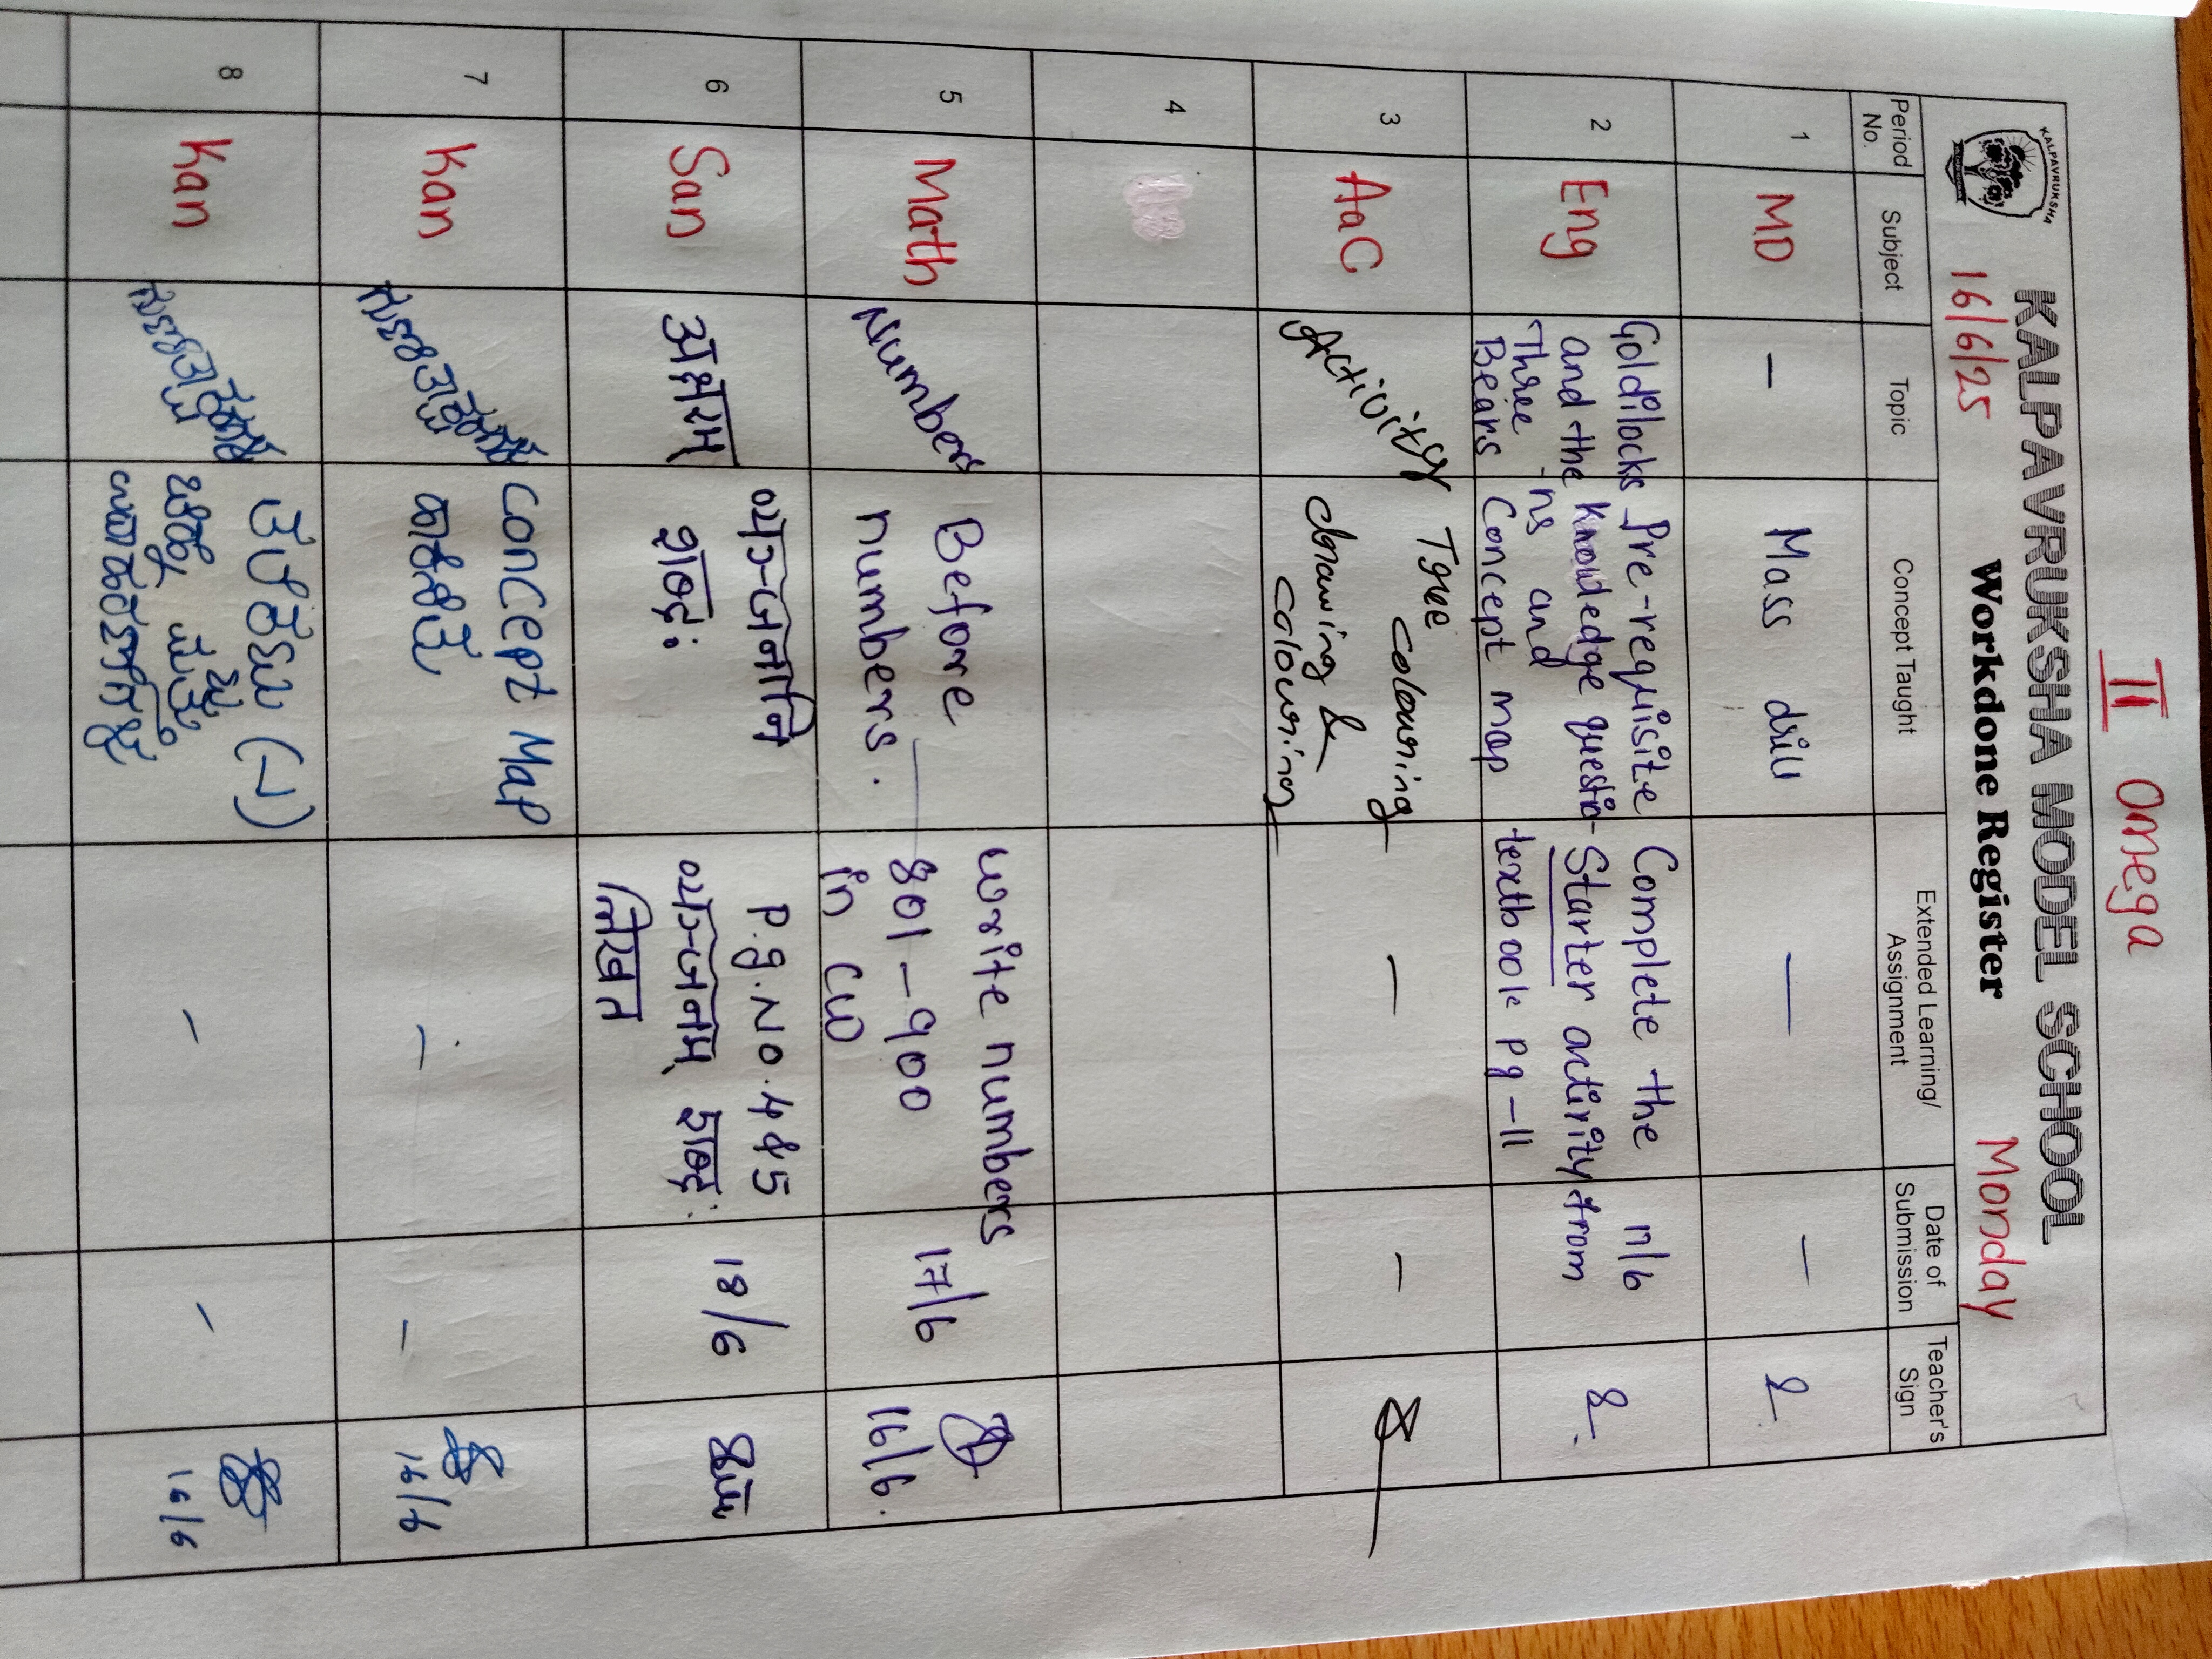 II Omega
KALPAVRUKSHA
KALPAVRUKSHA MODEL SCHOOL
16/6/25 Workdone Register Monday
Period No. Subject Topic Concept Taught Extended Learning/ Assignment Date of Submission Teacher's Sign
1 MD – Mass drill — –
2 Eng
Goldilocks
and the
Three
Bears
Pre-requisite
Knowledge questio-
ns and
Concept map
Complete the
Starter activity from
textbook pg-11
17/6
3 AaC Activity
Tree colouring
drawing &
colouring
– –
4
5 Math Numbers
Before
numbers.
write numbers
801-900
in CW
17/6
16/6.
6 San
व्यञ्जनानि
शब्द:
P.g.No.4&5
व्यञ्जनम् शब्द:
लिखत
18/6
7 Kan
Concept Map
– –
16/6
8 Kan
– –
16/6